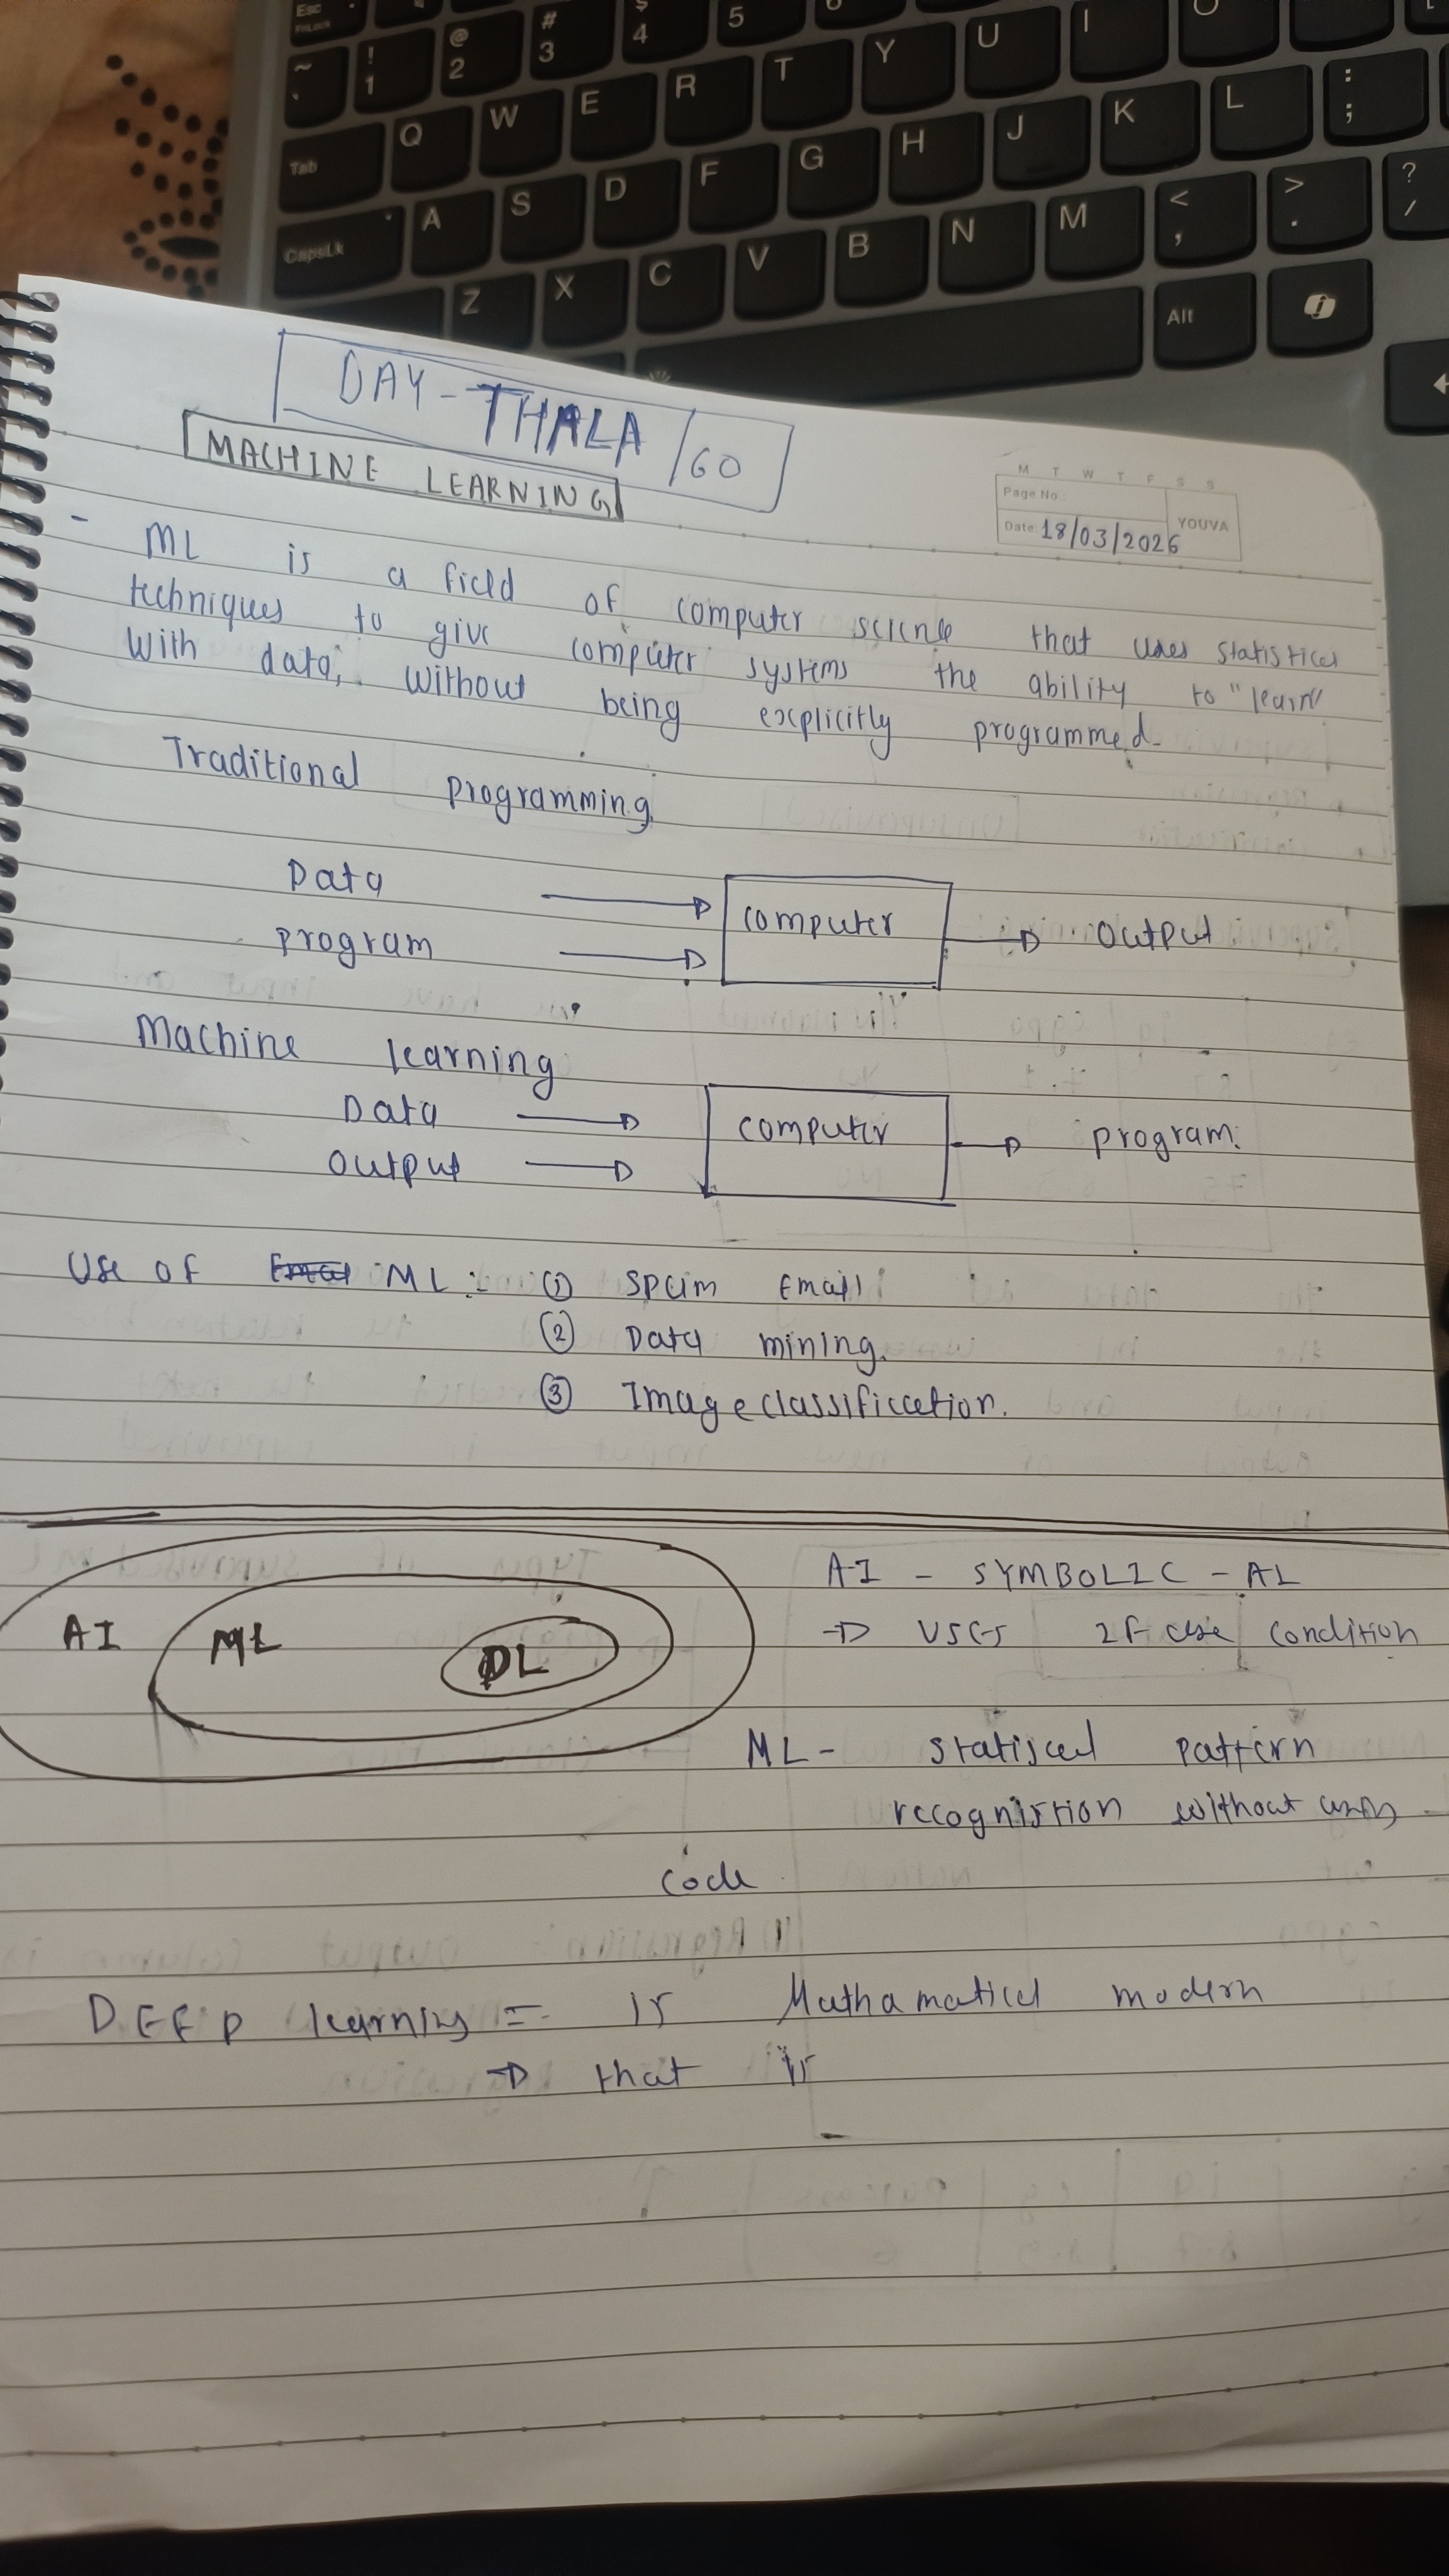 Esc
FnLock
# 3
$ 4
5
~ `
! 1
@ 2
Tab
Q W E R T Y U I O
CapsLk
A S D F G H J K L : ;
Z X C V B N M < , > . ? /
Alt
DAY - THALA /60
MACHINE LEARNING
M T W T F S S
Page No.:
Date: 18/03/2026
YOUVA
- ML is a field of computer science that uses statistical
techniques to give computer systems the ability to "learn"
with data, without being explicitly programmed.
Traditional programming.
Data
program
computer
output
Machine learning
Data
output
computer
program.
Use of ML: ① spam Email
② Data mining.
③ Image classification.
AI ML DL
AI - SYMBOLIC - AL
→ uses IF else condition
ML - statiscal pattern
recognistion without using
code
DEEP learning = Is Mathamatical modern
→ that is